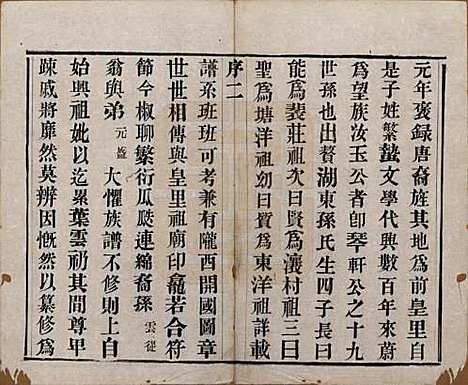 元年褒録唐裔旌其地爲前皇里自
是子姓繁蟄文學代興數百年來蔚
爲望族汝玉公者卽琴軒公之十九
世孫也出贅湖東孫氏生四子長曰
能爲裴莊祖次曰賢爲瀼村祖三曰
聖爲塘洋祖幼曰質爲東洋祖詳載
序二
譜系班班可考兼有隴西開國圖章
世世相傳與皇里祖廟印龕若合符
節今椒聊繁衍瓜瓞連綿裔孫雲從
翁與弟元益大懼族譜不修則上自
始興祖妣以迄累葉雲礽其間尊卑
踈戚將靡然莫辨因慨然以纂修爲